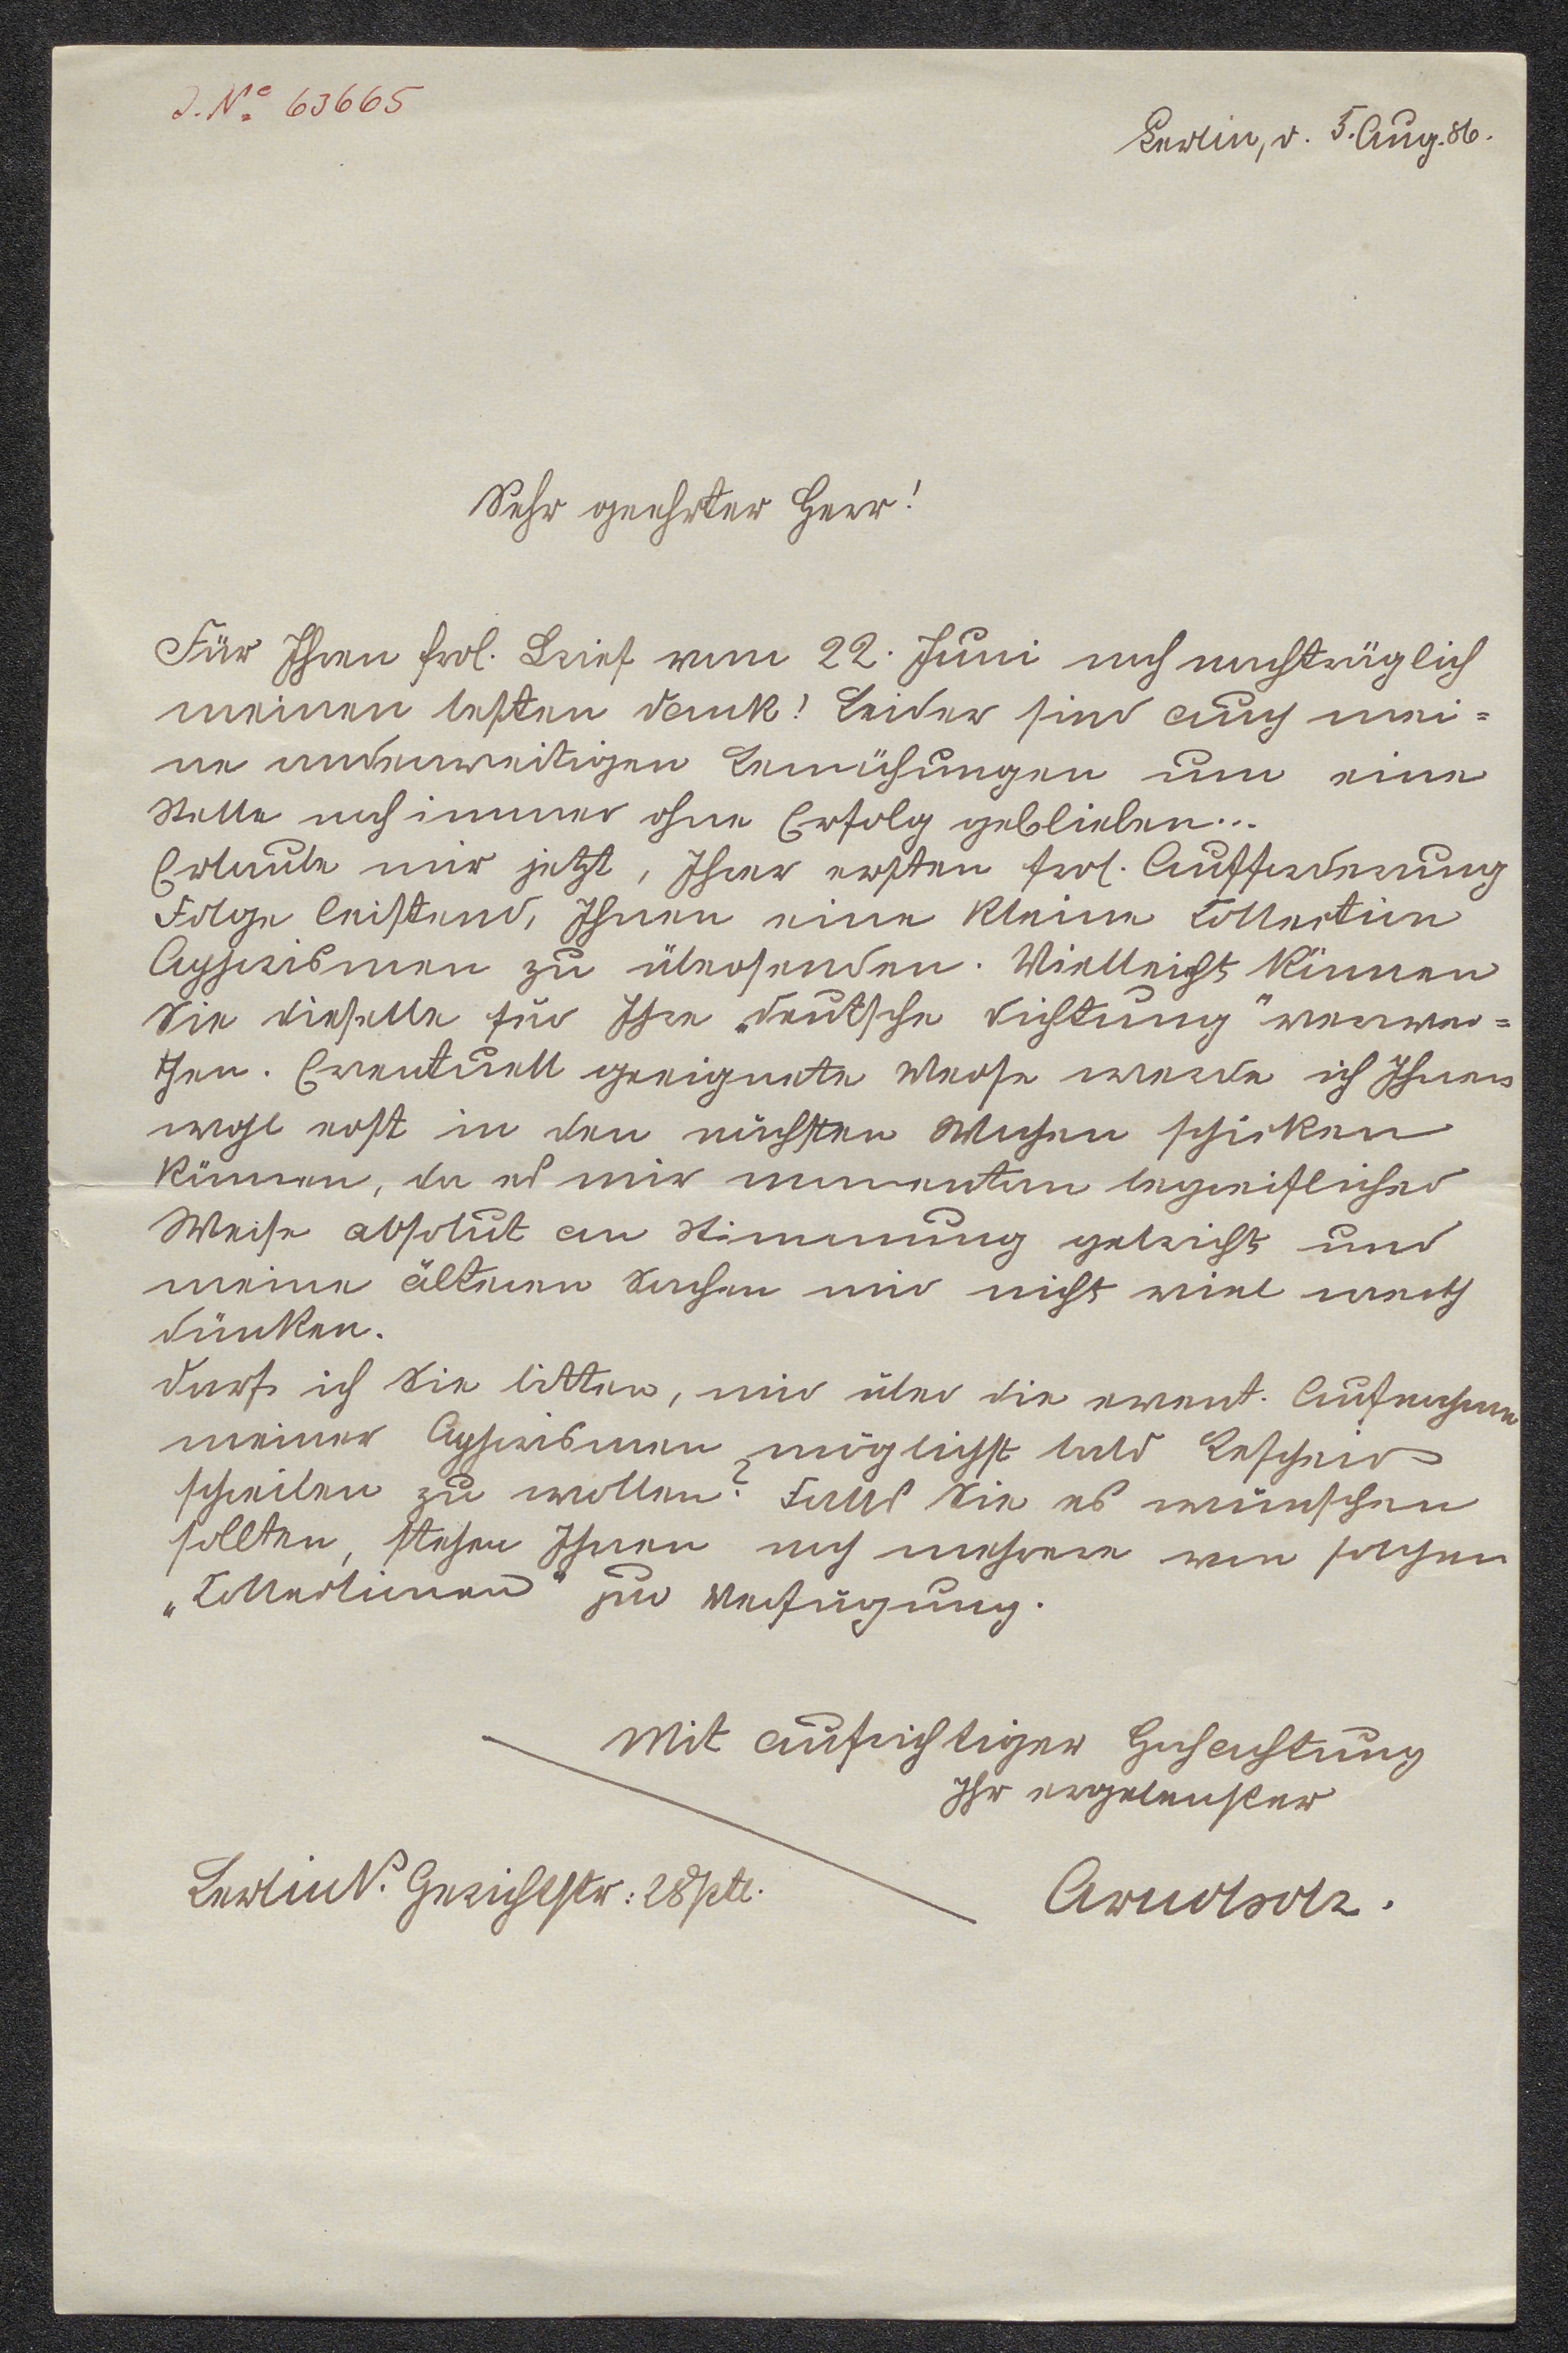 J. No 63665
Berlin, d. 5. Aug. 86.
Sehr geehrter Herr!
Für Ihren frdl. Brief vom 22. Juni noch nachträglich
meinen besten Dank! Leider sind auch mei=
ne anderweitigen Bemühungen um eine
Stelle noch immer ohne Erfolg geblieben...
Erlaube mir jetzt, Ihrer ersten frdl. Aufforderung
Folge leistend, Ihnen eine kleine Collection
Aphorismen zu übersenden. Vielleicht können
Sie dieselbe für Ihre „Deutsche Dichtung" verwer=
then. Eventuell geeignete Verse werde ich Ihnen
wohl erst in den nächsten Wochen schicken
können, da es mir momentan begreiflicher
Weise absolut an Stimmung gebricht und
meine älteren Sachen mir nicht viel werth
dünken.
Darf ich Sie bitten, mir über die event. Aufnahme
meiner Aphorismen möglichst bald Bescheid
schreiben zu wollen? Falls Sie es wünschen
sollten, stehen Ihnen noch mehrere von solchen
„Collectionen" zur Verfügung.
Mit aufrichtiger Hochachtung
Ihr ergebenster
Berlin N. Gerichtstr: 28 ptr.
Arno Holz.